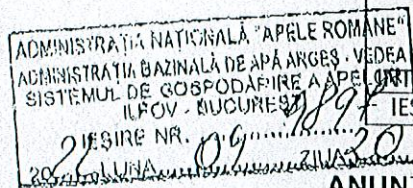 ADMINISTRAȚIA NAȚIONALĂ "APELE ROMÂNE"
ADMINISTRAȚIA BAZINALĂ DE APĂ ARGEȘ - VEDEA
SISTEMUL DE GOSPODĂRIRE A APELOR
ILFOV - BUCUREȘTI
IEȘIRE NR.
IEȘ
2022 LUNA 09 ZIUA 20
ANUN